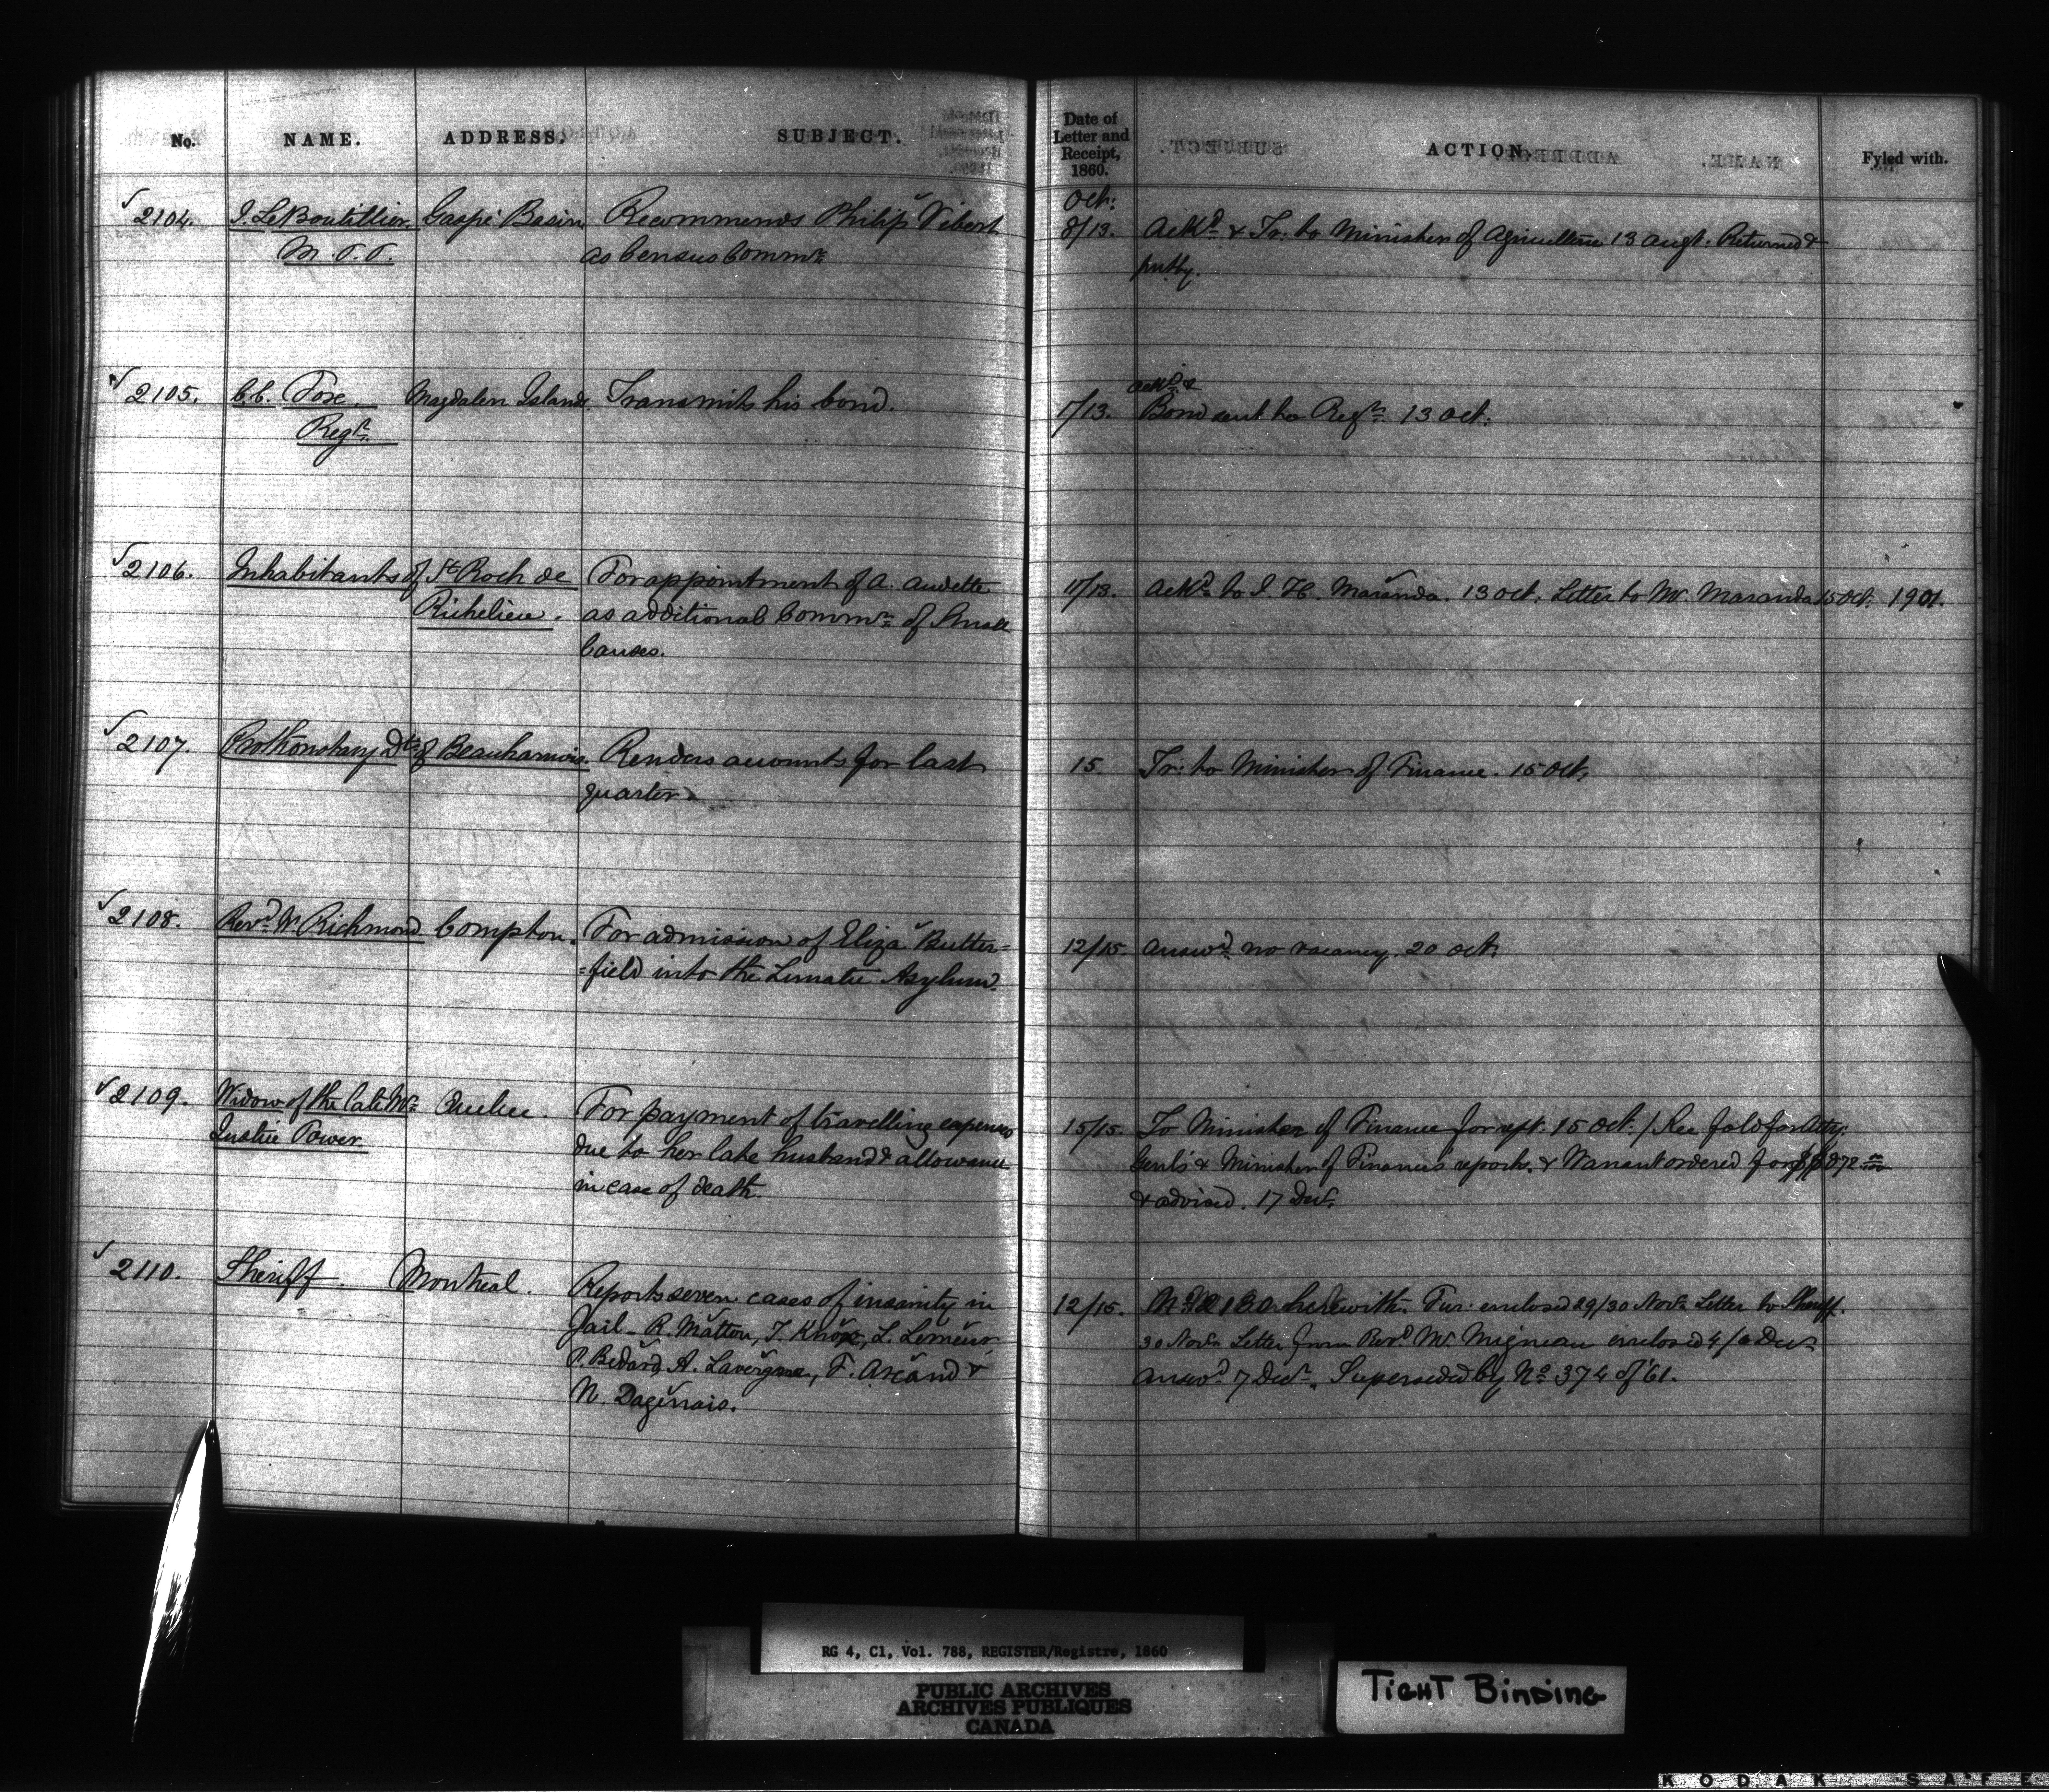 No. NAME. ADDRESS. SUBJECT. Date of Letter and Receipt, 1860. ACTION. Fyled with.
Oct:
2104. J. LeBoutillier, Gaspé Basin Recommends Philip Vibert 8/13. Ackd & Tr: to Minister of Agriculture 13 Augt. Returned &
M.P.P. as Census Commr put by.
2105. C.C. Fox. Magdalen Islands. Transmits his bond. 1/13. Ackd & Bond sent to Regr 13 Oct.
Regr.
2106. Inhabitants of St Roch de For appointment of A. Audette 11/13. Ackd to J. H. Maranda. 13 Oct. Letter to Mr. Maranda 15 Oct. 1901.
Richelieu. as additional Commr of Small
Causes.
2107. Prothonotary Dt of Beauharnois. Renders accounts for last 15. Tr: to Minister of Finance. 15 Oct.
quarter.
2108. Revd W Richmond Compton. For admission of Eliza Butter= 12/15. Answd no vacancy. 20 Oct.
=field into the Lunatic Asylum.
2109. Widow of the late Mr Quebec. For payment of travelling expenses 15/15. To Minister of Finance for rept. 15 Oct. / See fold for Atty:
Justice Power due to her late husband & allowance Genl's & Minister of Finance's reports. & Warrant ordered for
in case of death. & advised. 17 Decr.
2110. Sheriff. Montreal. Reports seven cases of insanity in 12/15. herewith. Fur: enclosed 29/30 Novr Letter to Sheriff.
Jail - R. Matton, T. Knox, L. Lemeur 30 Novr Letter from Revd Mr. Migneau enclosed 4/6 Decr
P. Bedard, A. Lavergne, F. Arcand & answd 7 Decr. Superseded by No 374 of '61.
N. Dagenais.
RG 4, C1, Vol. 788, REGISTER/Registre, 1860
PUBLIC ARCHIVES
ARCHIVES PUBLIQUES
CANADA
TIGHT BINDING
KODAK SAFE